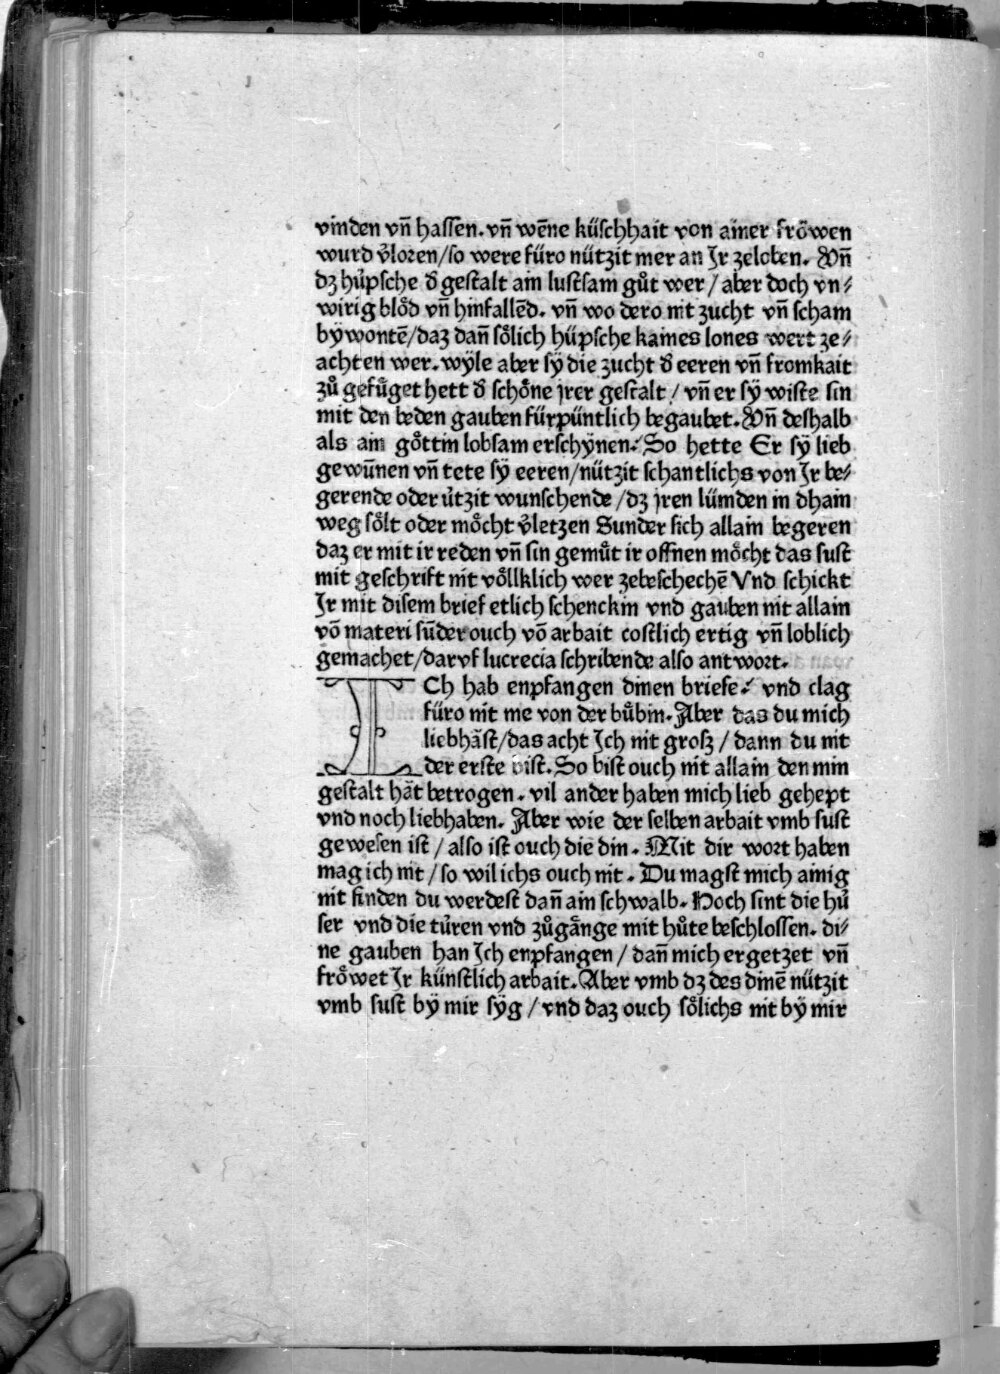 vinden vn̄ hassen. vn̄ wēne küschhait von ainer frȯwen
wurd v̓loren/so were füro nützit mer an Ir zeloben. Vn̄
dz hüpsche d̓ gestalt ain lustsam gůt wer / aber doch vn⸗
wirig blȯd vn̄ hinfallēd. vn̄ wo dero nit zucht vn̄ scham
bÿ wontē/daz dan̄ sȯlich hüpsche kaines lones wert ze⸗
achten wer. wÿle aber sÿ die zucht d̓ eeren vn̄ fromkait
zů gefüget hett d̓ schȯne jrer gestalt / vn̄ er sÿ wiste sin
mit den beden gauben fürpüntlich begaubet. Vn̄ deshalb
als ain gȯttin lobsam erschÿnen. So hette Er sÿ lieb
gewūnen vn̄ tete sÿ eeren/nützit schantlichs von Ir be⸗
gerende oder ützit wunschende /dz jren lümden in dhain
weg sȯlt oder mȯcht v̓letzen Sunder sich allain begeren
daz er mit ir reden vn̄ sin gemůt ir offnen mȯcht das sust
mit geschrift nit vȯllklich wer zebeschechē Vnd schickt
Ir mit disem brief etlich schenckin vnd gauben nit allain
vō materi sūder ouch vō arbait costlich ertig vn̄ loblich
gemachet/daruf lucrecia schribende also antwort.
ICh hab enpfangen dinen briefe. vnd clag
füro nit me von der bůbin. Aber das du mich
liebhāst/das acht Ich nit grosz / dann du nit
der erste bist. So bist ouch nit allain den min
gestalt hāt betrogen. vil ander haben mich lieb gehept
vnd noch liebhaben. Aber wie der selben arbait vmb sust
gewesen ist / also ist ouch die din. Mit dir wort haben
mag ich nit / so wil ichs ouch nit. Du magst mich ainig
nit finden du werdest dan̄ ain schwalb. Hoch sint die hü
ser vnd die türen vnd zůgänge mit hůte beschlossen. di⸗
ne gauben han Ich enpfangen / dan̄ mich ergetzet vn̄
frȯwet Ir künstlich arbait. Aber vmb dz des dinē nützit
vmb sust bÿ mir sÿg / vnd daz ouch sȯlichs nit bÿ mir